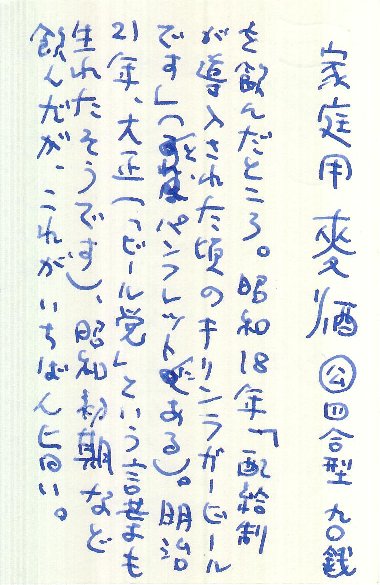 家庭用 麥酒 公 四合型 九〇銭
を飲んだところ。昭和18年「配給制
が導入された頃のキリンラガービール
です」(と、パンフレットにある)。明治
21年、大正(「ビール党」という言葉も
生れたそうです)、昭和初期など
飲んだが、これがいちばん旨い。